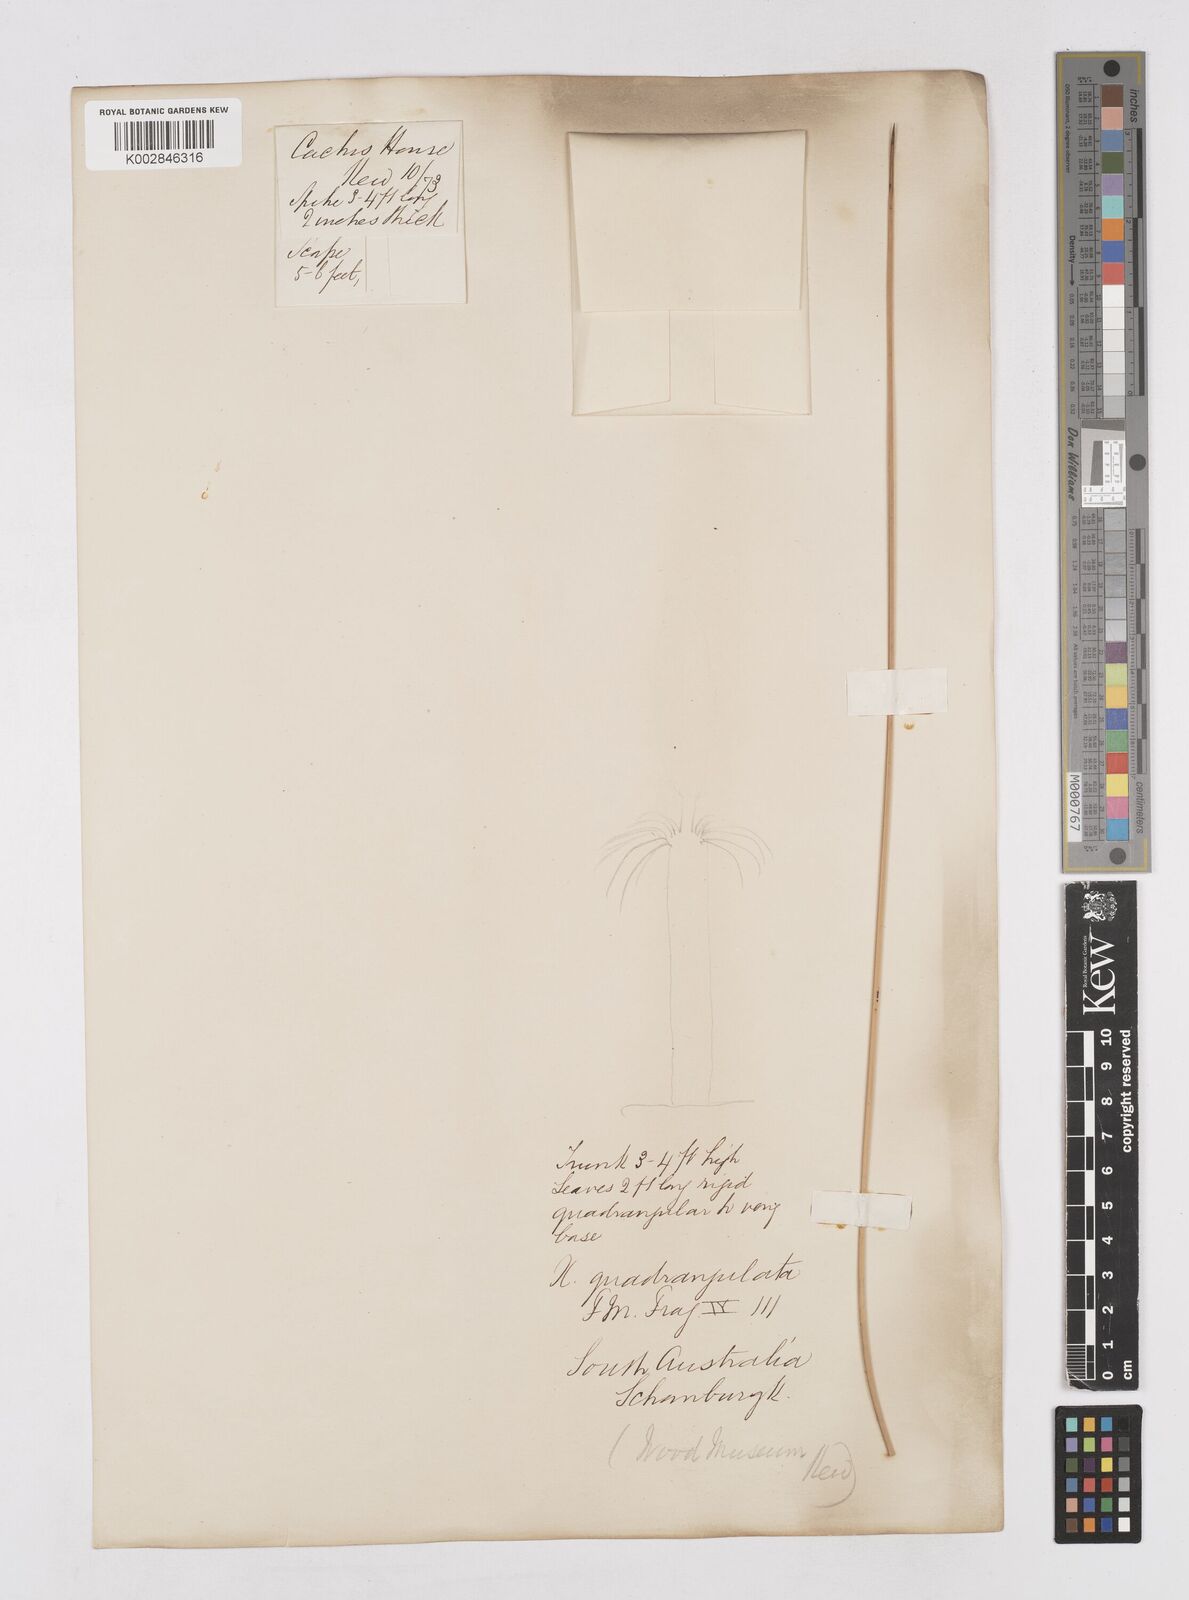 ROYAL BOTANIC GARDENS KEW
K002846316
Cactus House
Kew 10/73
Spike 3-4 ft long
2 inches thick
Scape
5-6 feet,
Trunk 3-4 ft high
Leaves 2 ft long rigid
quadrangular to very
base
X. quadrangulata
F.M. Frag IV 111
South Australia
Schomburgk.
(Wood Museum
Kew)
inches
centimeters
Don Williams
Density
M000767
Kew
Royal Botanic Gardens
copyright reserved
0 1 2 3 4 5 6 7 8 9 10
cm